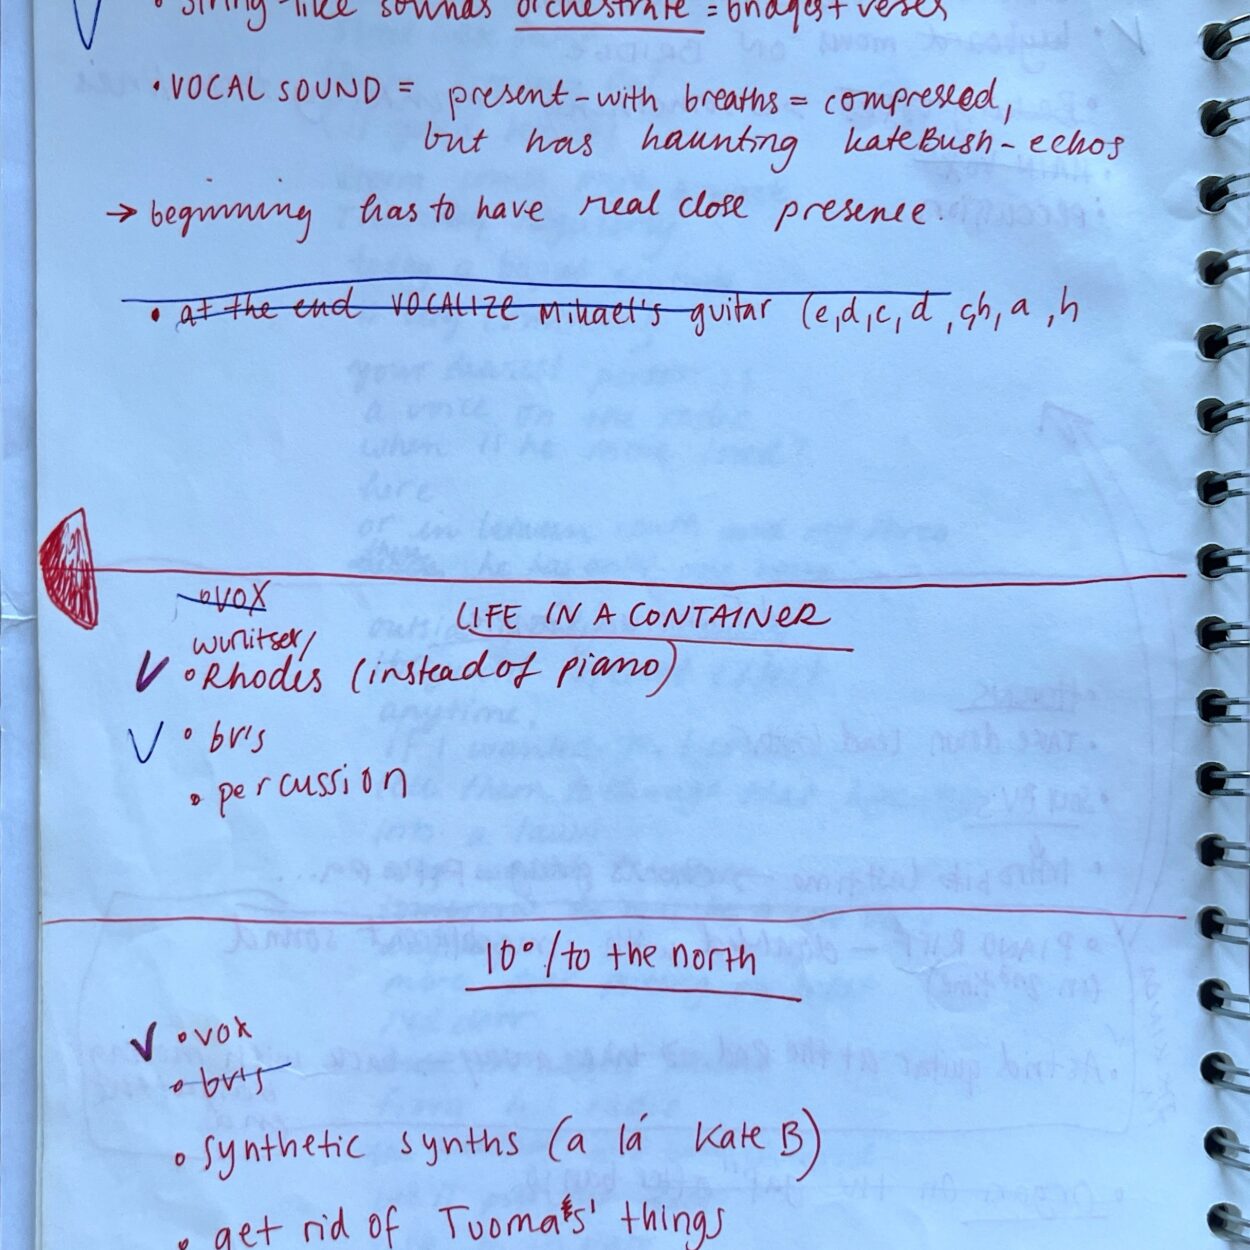 • string-like sounds orchestrate = bridges + verses
• VOCAL SOUND = present - with breaths = compressed,
but has haunting kateBush - echos
→ beginning has to have real close presence.
• at the end VOCALIZE Mikael's guitar (e,d,c,d, gh, a, h
• vox
LIFE IN A CONTAINER
wurlitser/
V • Rhodes (instead of piano)
V • bv's
• percussion
10°/to the north
V • vox
• bv's
• synthetic synths (a lá Kate B)
• get rid of Tuomas' things